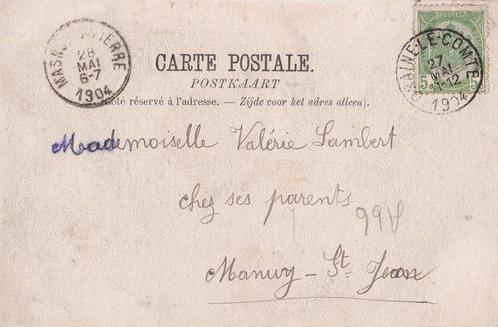 MASNUY-ST-PIERRE
28
MAI
6-7
1904
BRAINE-LE-COMTE
27
MAI
11-12
1904
5 5
CARTE POSTALE.
POSTKAART
Côté réservé à l'adresse. — Zijde voor het adres alleen).
Mademoiselle Valérie Lambert
chez ses parents
A66
Manuy - St Jean